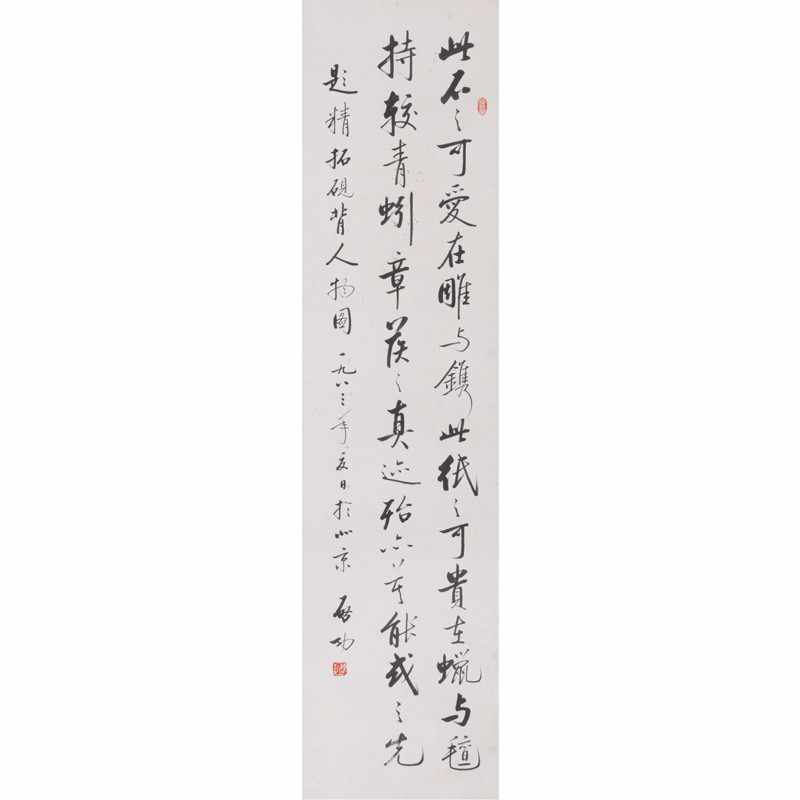 此石之可愛在雕与鐫此紙之可貴在蠟与氊
持較青蚓章侯之真迹殆亦莫能或之先
題精拓硯背人物圖 一九八三年夏日於北京 啟功